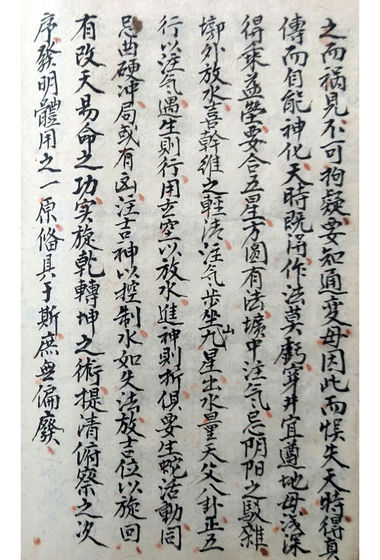 之而禍見不可拘疑要知通變毋因此而悞失天時得真
傳而自能神化天時既用作法莫虧穿井宜遵地母淺深
得乘益塋要合五星方圓有法壙中注气忌阴阳之駁雜
墎外放水喜幹維之輕清注气步坐山九星出水量天父八卦正五
行以注气遇生則行用玄空以放水進神則折但要生蛇活動同
忌曲硬冲局或有凶注吉神以控制水如失法放吉位以旋回
有改天易命之功实旋乾轉坤之術提清俯察之次
序發明體用之一原俻具于斯庶無偏廢